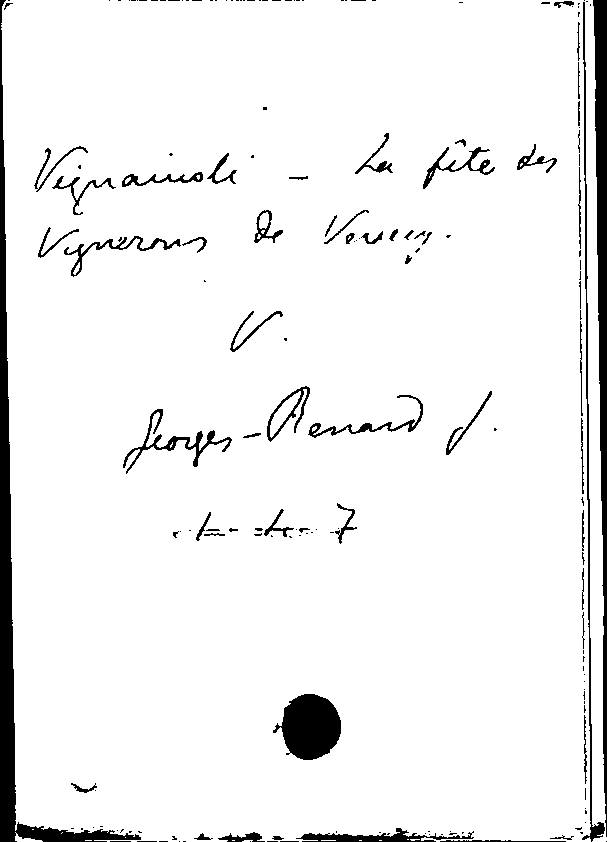 Vignainoli - La fête des
Vignerons de Vevey.
V.
Georges-Renard J.
7